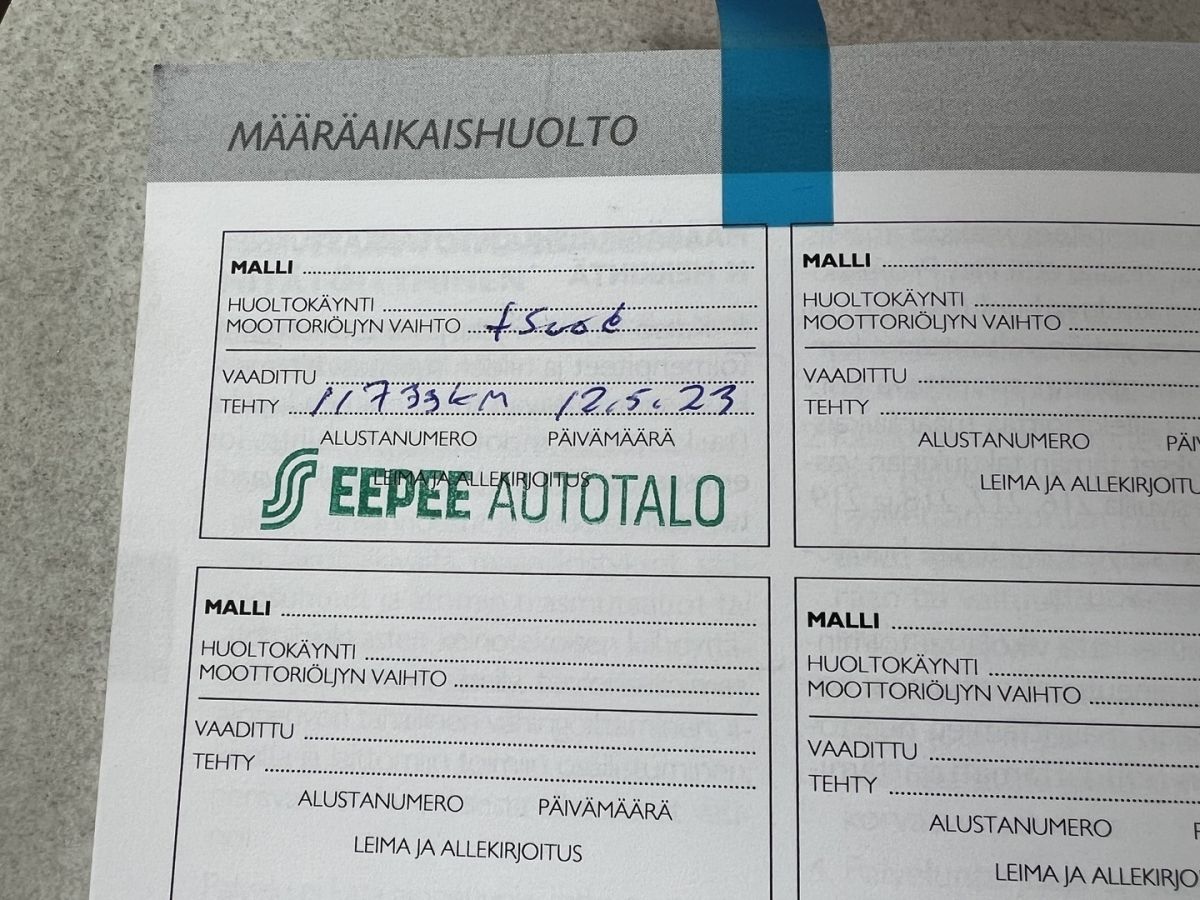 MÄÄRÄAIKAISHUOLTO
MALLI
HUOLTOKÄYNTI
MOOTTORIÖLJYN VAIHTO
VAADITTU
TEHTY 11739KM 12.5.23
ALUSTANUMERO PÄIVÄMÄÄRÄ
LEIMA JA ALLEKIRJOITUS
EEPEE AUTOTALO
MALLI
HUOLTOKÄYNTI
MOOTTORIÖLJYN VAIHTO
VAADITTU
TEHTY
ALUSTANUMERO
LEIMA JA ALLEKIRJOITU
MALLI
HUOLTOKÄYNTI
MOOTTORIÖLJYN VAIHTO
VAADITTU
TEHTY
ALUSTANUMERO PÄIVÄMÄÄRÄ
LEIMA JA ALLEKIRJOITUS
MALLI
HUOLTOKÄYNTI
MOOTTORIÖLJYN VAIHTO
VAADITTU
TEHTY
ALUSTANUMERO
LEIMA JA ALLEKIRJO